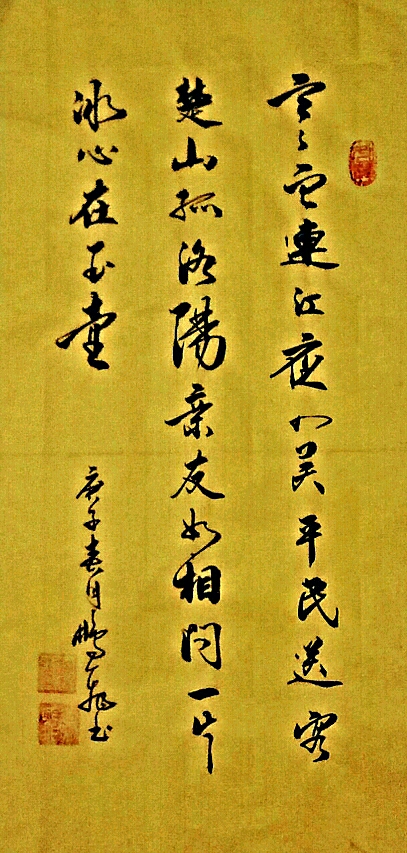 寒雨連江夜入吴平民送客
楚山孤洛陽亲友如相問一片
冰心在玉壶
庚子春月鵬飛书